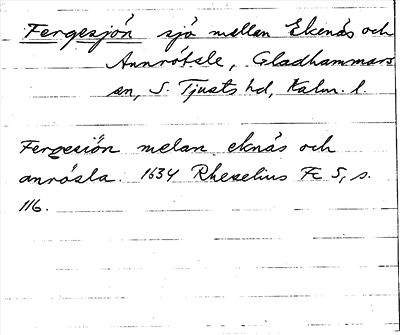 Fergesjön sjö mellan Ekenäs och
Annrötsle, Gladhammars
sn, S. Tjusts hd, Kalm. l.
Fergesiön melan eknäs och
anrösla. 1634 Rhezelius Fc 5, s.
116.